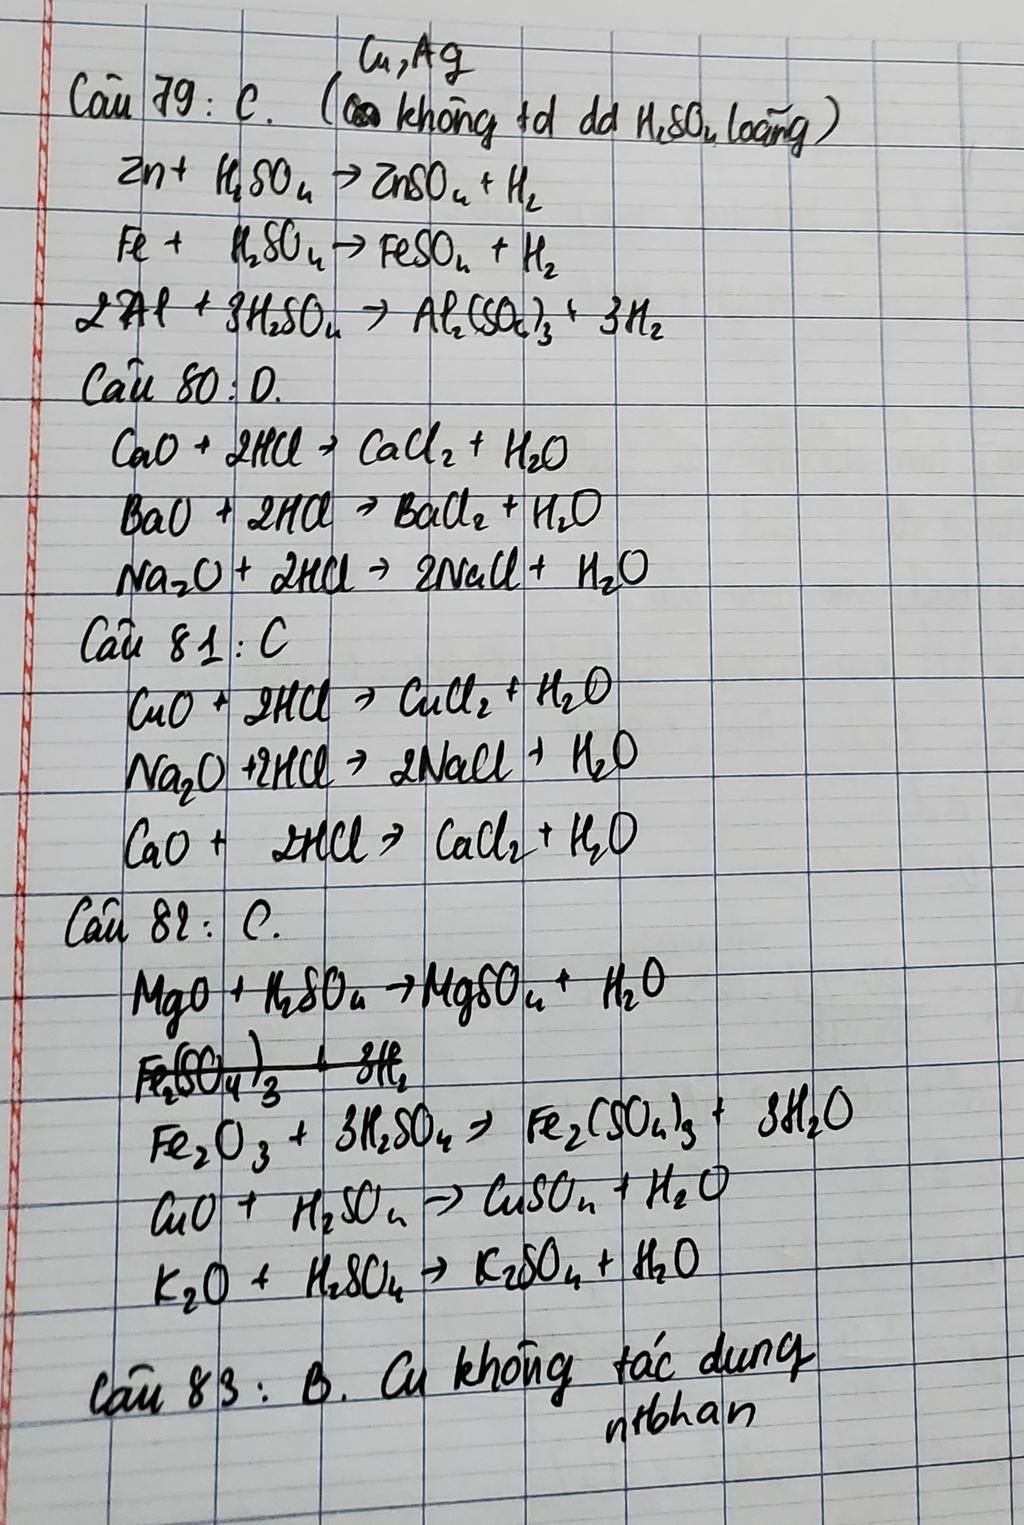 Cu, Ag
Câu 79: C. ( không td dd H₂SO₄ loãng)
Zn + H₂SO₄ → ZnSO₄ + H₂
Fe + H₂SO₄ → FeSO₄ + H₂
2Al + 3H₂SO₄ → Al₂(SO₄)₃ + 3H₂
Câu 80: D.
CaO + 2HCl → CaCl₂ + H₂O
BaO + 2HCl → BaCl₂ + H₂O
Na₂O + 2HCl → 2NaCl + H₂O
Câu 81: C
CuO + 2HCl → CuCl₂ + H₂O
Na₂O + 2HCl → 2NaCl + H₂O
CaO + 2HCl → CaCl₂ + H₂O
Câu 82: C.
MgO + H₂SO₄ → MgSO₄ + H₂O
Fe₂(SO₄)₃ + 3H₂
Fe₂O₃ + 3H₂SO₄ → Fe₂(SO₄)₃ + 3H₂O
CuO + H₂SO₄ → CuSO₄ + H₂O
K₂O + H₂SO₄ → K₂SO₄ + H₂O
Câu 83: B. Cu không tác dung
ntbhan